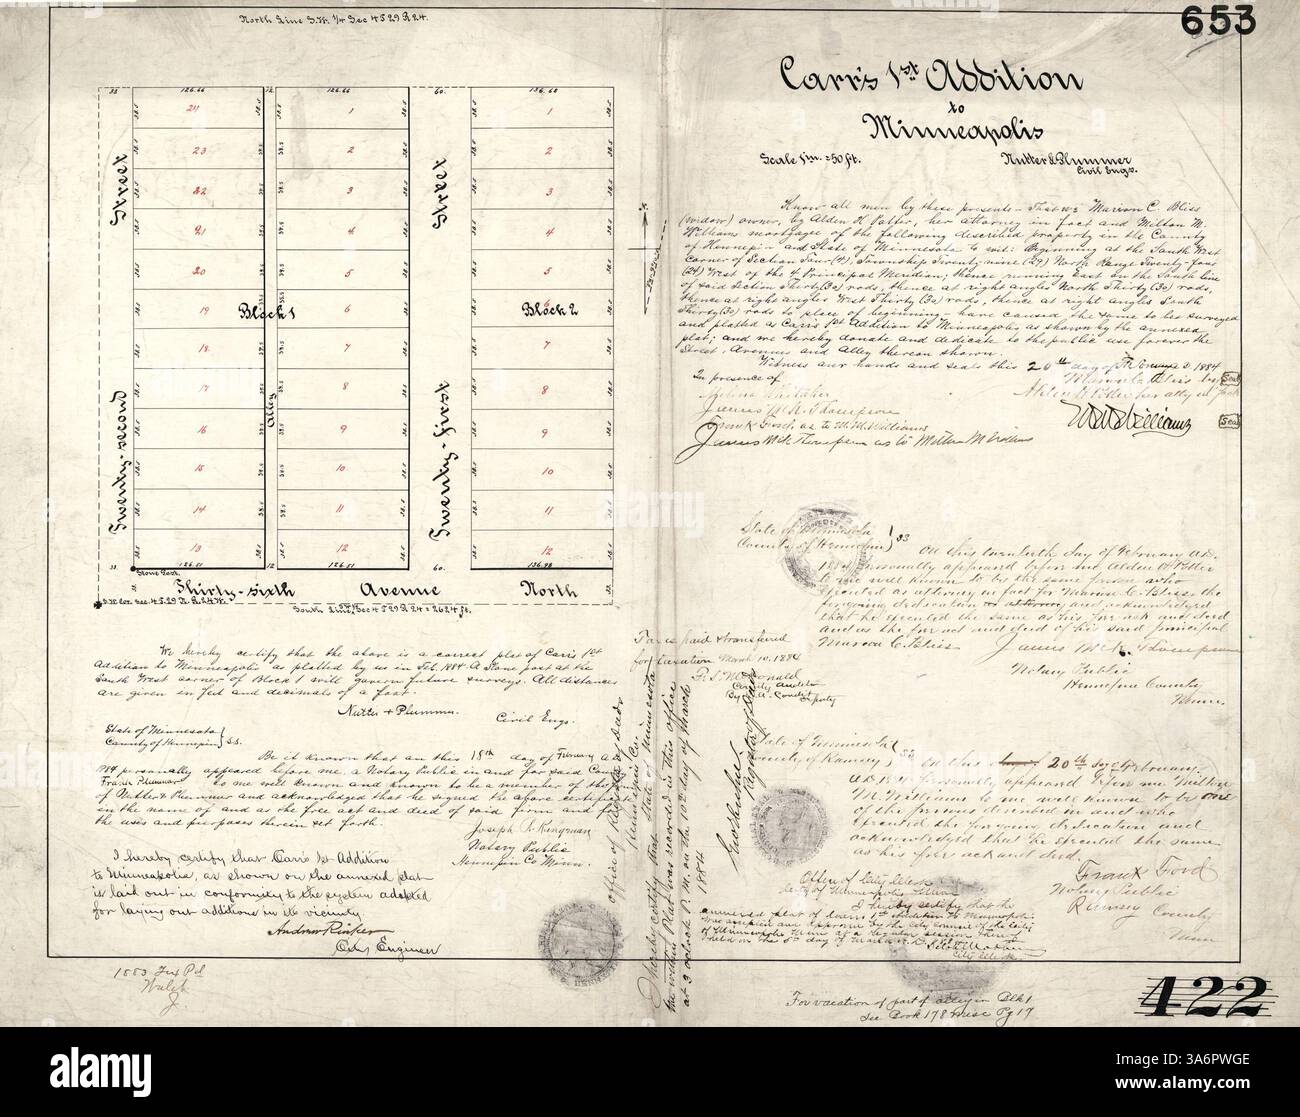 653
North Line S.W. 1/4 Sec 4 T 29 R 24.
Carr's 1st Addition
to
Minneapolis
Scale 1 in. = 50 ft.
Nutter & Plummer
Civil Engs.
33. 126.66 12. 126.66 60. 136.68
24 1 1
23 2 2
22 3 3
21 4 4
20 5 5
19 Block 1 6 Block 2 6
18 7 7
17 8 8
16 9 9
15 10 10
14 11 11
13 12 12
Street
Twenty-second
Alley
Street
Twenty-first
Stone Post
Thirty-sixth Avenue North
S.W. Cor. Sec. 4 T. 29 N. R. 24 W.
South Line S.W. 1/4 Sec 4 T 29 R 24 = 2624 ft.
Know all men by these presents – That we Marion C. Bliss
(widow) owner, by Alden H. Potter, her attorney in fact and Milton M.
Williams mortgagee of the following described property in the County
of Hennepin and State of Minnesota to wit: Beginning at the South West
corner of Section Four (4), Township Twenty-nine (29) North Range Twenty-four
(24) West of the 4 Principal Meridian; thence running East on the South line
of said Section Thirty (30) rods, thence at right angles North Thirty (30) rods,
thence at right angles West Thirty (30) rods, thence at right angles South
Thirty (30) rods to place of beginning – have caused the same to be surveyed
and platted as Carr's 1st Addition to Minneapolis as shown by the annexed
plat; and we hereby donate and dedicate to the public use forever the
Street, Avenues and Alley thereon shown.
Witness our hands and seals this 20th day of February A.D. 1884
In presence of
Marion C. Bliss by Seal
Alden H. Potter her atty in fact
James McR. Thompson
M M Williams Seal
Frank Ford as to M. M. Williams
James McR. Thompson as to Milton M Williams
State of Minnesota
County of Hennepin } SS
On this twentieth day of February A.D.
1884 personally appeared before me, Alden H. Potter
to me well known to be the same person who
executed as attorney in fact for Marion C. Bliss the
foregoing dedication and acknowledged
that he executed the same as his free act and deed
and as the free act and deed of his said principal
Marion C. Bliss
James McR. Thompson
Notary Public
Hennepin County
Minn
We hereby certify that the above is a correct plat of Carr's 1st
Addition to Minneapolis as platted by us in Feb. 1884. A Stone post at the
South West corner of Block 1 will govern future surveys. All distances
are given in feet and decimals of a foot.
Nutter & Plummer
Civil Engs.
State of Minnesota
County of Hennepin } S.S.
Be it known that on this 18th day of February A.D.
1884 personally appeared before me, a Notary Public in and for said County
Frank Plummer to me well known and known to be a member of the firm
of Nutter & Plummer and acknowledged that he signed the above certificate
in the name of and as the free act and deed of said firm and for
the uses and purposes therein set forth.
Joseph R. Kingman
Notary Public
Hennepin Co Minn.
I hereby certify that Carr's 1st Addition
to Minneapolis, as shown on the annexed plat
is laid out in conformity to the system adopted
for laying out additions in its vicinity
Andrew Rinker
City Engineer
Taxes paid & transferred
for taxation March 10, 1884
County Auditor
Deputy
Office of Register of Deeds
Hennepin Co.
State of Minnesota
I hereby certify that
the within Plat was record in this office
at 3 o'clock P. M. on the 10th day of March
1884
Register of Deeds
State of Minnesota
County of Ramsey } SS
On this 20th day of February
A.D. 1884 Personally appeared before me Milton
M. Williams to me well known to be one
of the persons described in and who
executed the foregoing dedication and
acknowledged that he executed the same
as his free act and deed.
Frank Ford
Notary Public
Ramsey County
Minn
Office of City Clerk
City of Minneapolis Minn
I hereby certify that the
annexed plat of Carr's 1st Addition to Minneapolis
was accepted and approved by the city council of the City
of Minneapolis Minn at a regular session thereof
held on the 5th day of March A.D. 1884
City Clerk
1883 Tax Pd
Walsh
J.
For vacation of part of alley in Blk 1
See Book 178 Misc Pg 17
422
alamy
Image ID: 3A6PWGE
www.alamy.com